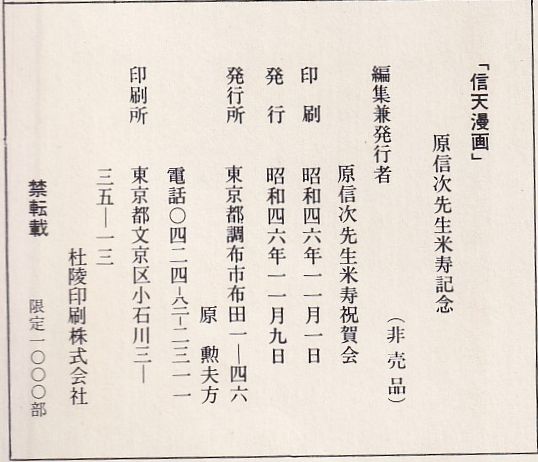 「信天漫画」
原信次先生米寿記念
（非売品）
編集兼発行者
原信次先生米寿祝賀会
印刷　昭和四六年一一月一日
発行　昭和四六年一一月九日
発行所　東京都調布市布田一―四六
原　勲夫方
電話〇四二四―八二―二三一一
印刷所　東京都文京区小石川三―
三五―一三
杜陵印刷株式会社
禁転載　限定一〇〇〇部